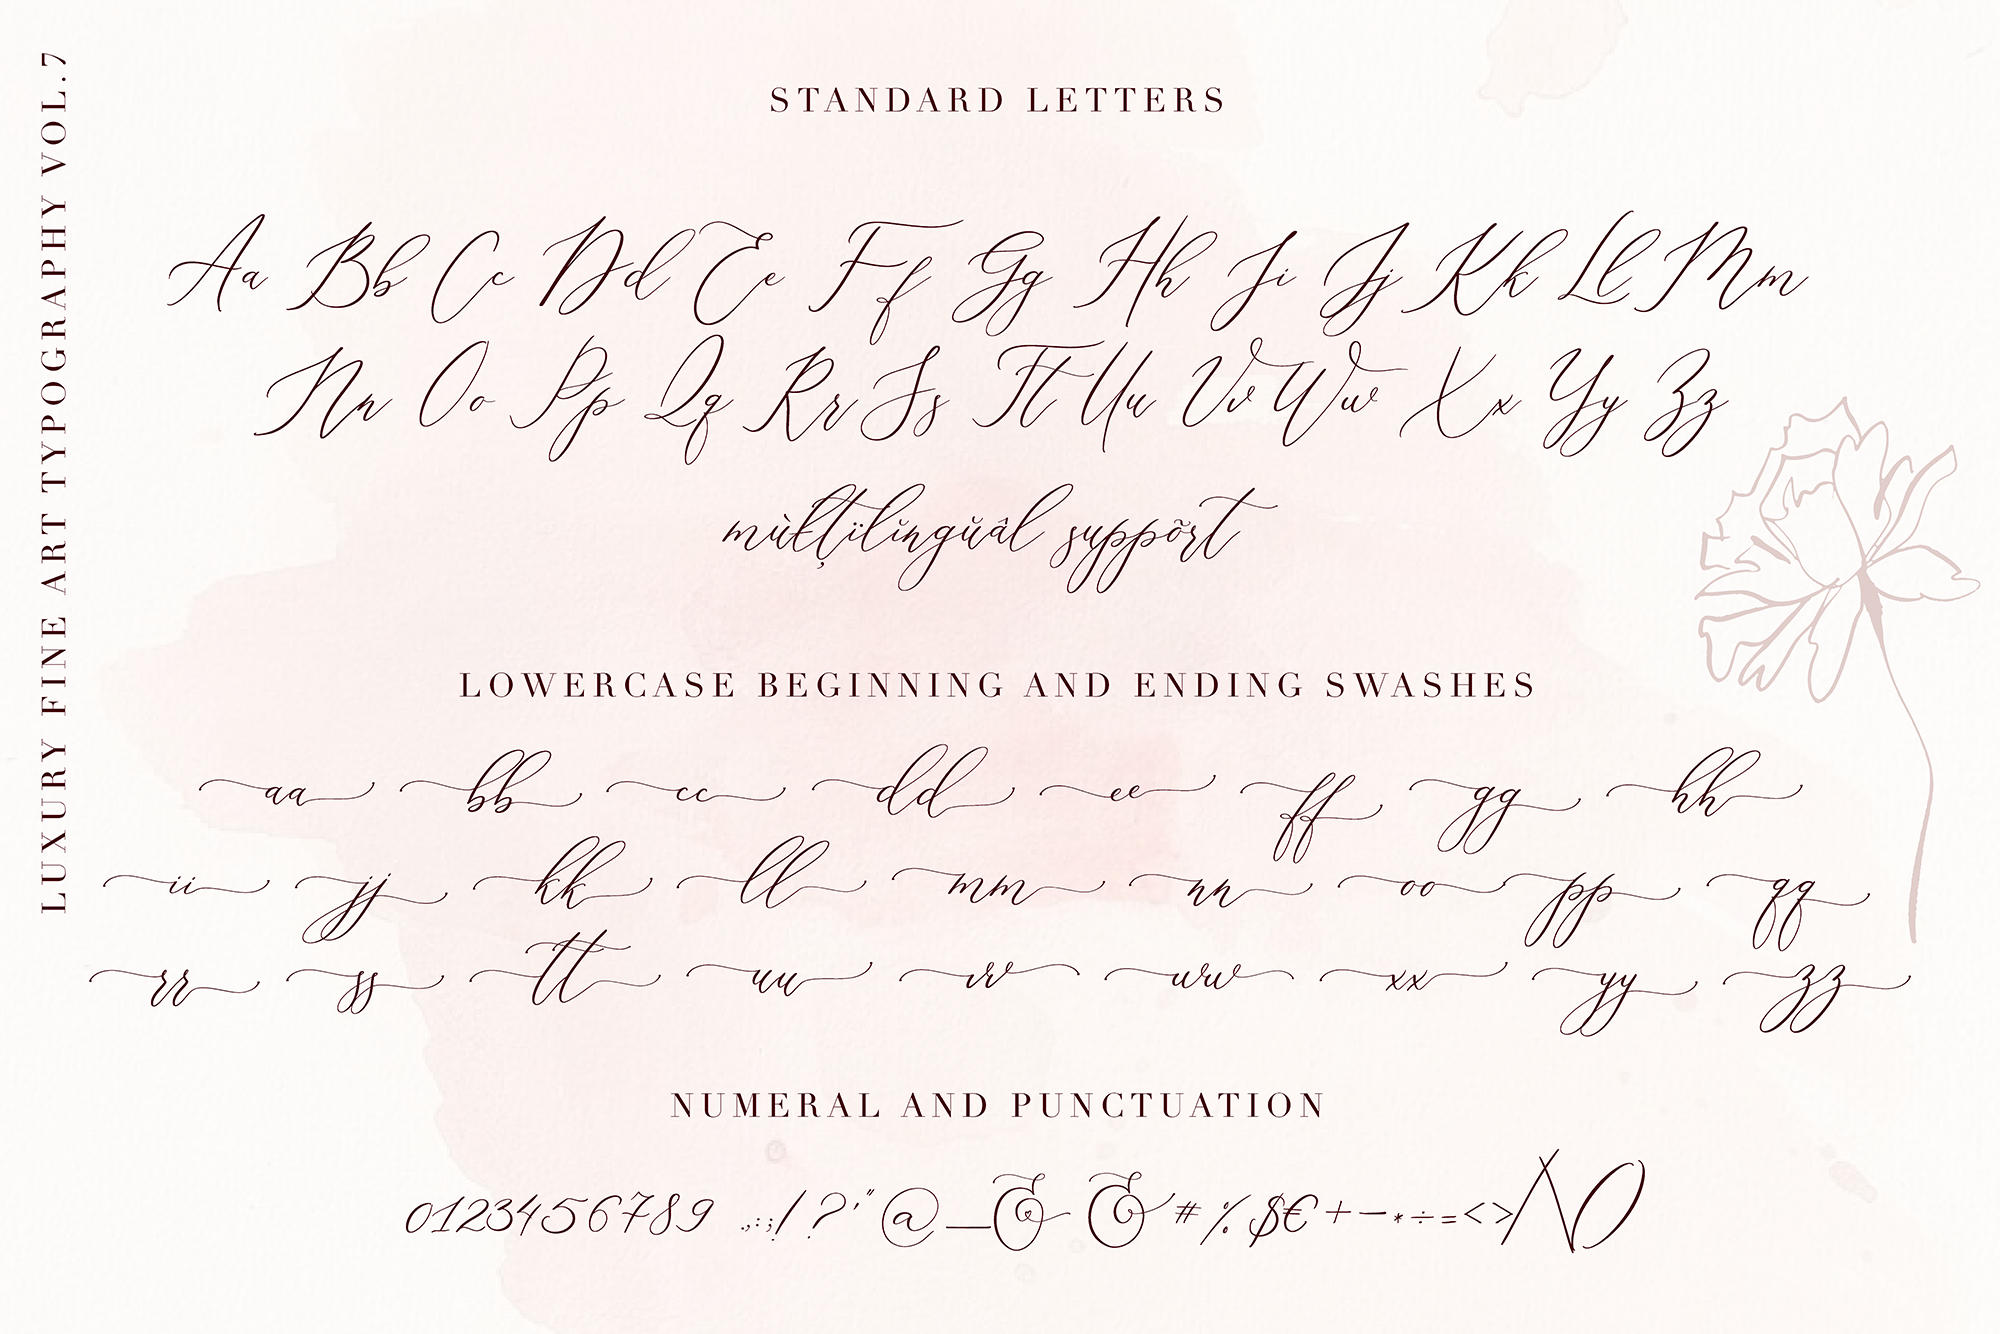 LUXURY FINE ART TYPOGRAPHY VOL.7
STANDARD LETTERS
Aa Bb Cc Dd Ee Ff Gg Hh Ii Jj Kk Ll Mm
Nn Oo Pp Qq Rr Ss Tt Uu Vv Ww Xx Yy Zz
mùlţïlĭngŭâl suppõrt
LOWERCASE BEGINNING AND ENDING SWASHES
aa bb cc dd ee ff gg hh
ii jj kk ll mm nn oo pp qq
rr ss tt uu vv ww xx yy zz
NUMERAL AND PUNCTUATION
0123456789 .,:;! ? ' " @ _ & & # % $ € + - * ÷ = < > / \ ( )